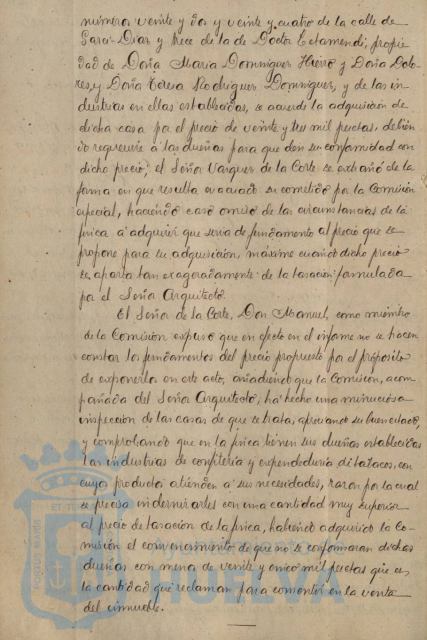 número veinte y dos y veinte y cuatro de la calle de
Garci-Diaz y trece de la de Doctor Letamendi, propie
dad de Doña Maria Dominguez Hierro y Doña Dolo-
res y Doña Teresa Rodriguez Dominguez, y de las in-
dustrias en ellas establecidas, se acuerde la adquisición de
dicha casa por el precio de veinte y tres mil pesetas, debien
do requerirse á las dueñas para que den su conformidad con
dicho precio; el Señor Vazquez de la Corte se extrañó de la
forma en que resulta evacuado su cometido por la Comisión
especial, haciendo caso omiso de las circunstancias de la
finca á adquirir que sirva de fundamento al precio que se
propone para su adquisición, máxime cuando dicho precio
se aparta tan exageradamente de la tasación formulada
por el Señor Arquitecto.
El Señor de la Corte, Don Manuel, como miembro
de la Comisión expuso que en efecto en el informe no se hacen
constar los fundamentos del precio propuesto por el propósito
de exponerlos en este acto, añadiendo que la Comision, acom
pañada del Señor Arquitecto, ha hecho una minuciosa
inspección de las casas de que se trata, apreciando su buen estado,
y comprobando que en la finca tienen sus dueñas establecidas
las industrias de confiteria y expendeduria de tabacos, con
cuyo producto atienden á sus necesidades, razon por la cual
se precisa indemnizarles con una cantidad muy superior
al precio de tasación de la finca, habiendo adquirido la Co-
misión el convencimiento de que no se conformaran dichas
dueñas con menos de veinte y cinco mil pesetas que es
la cantidad que reclaman para consentir en la venta
del inmueble.
Ayuntamiento de
HUELVA
PORTUS MARIS ET TE